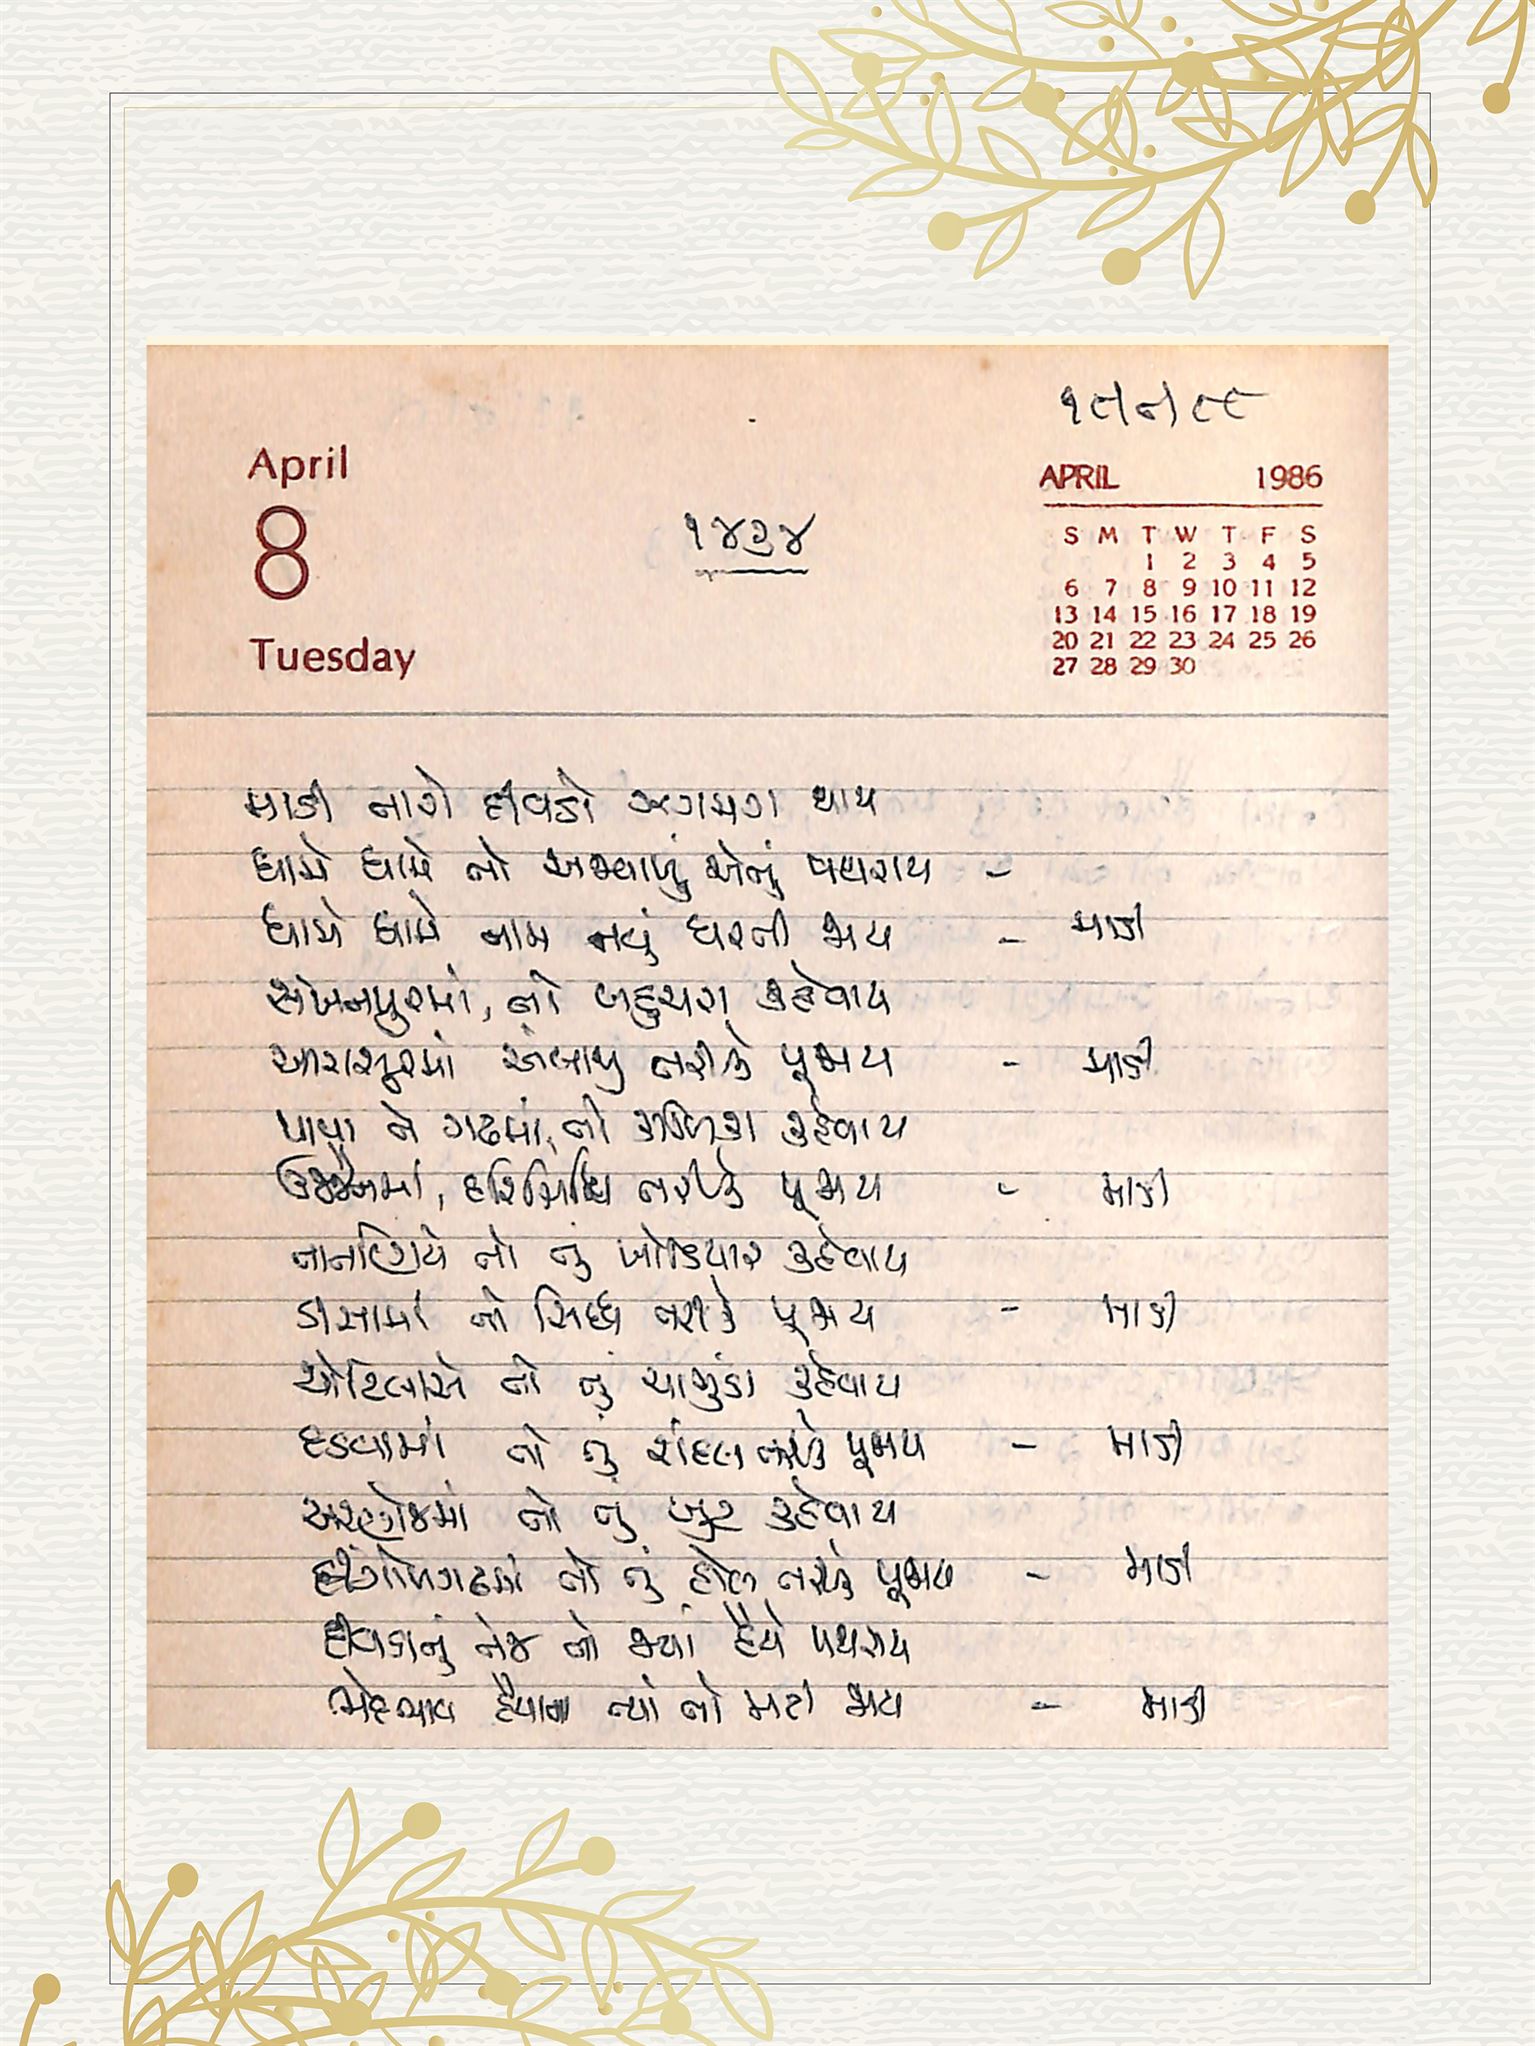 ૧૯/૮/૮૮
April
8
Tuesday
૧૪૩૪
APRIL 1986
S M T W T F S
1 2 3 4 5
6 7 8 9 10 11 12
13 14 15 16 17 18 19
20 21 22 23 24 25 26
27 28 29 30
માડી તારો દીવડો ઝગમગ થાય
ધામે ધામે તો અજવાળું એનું પથરાય -
ધામે ધામે નામ નવું ધરતી જાય - માડી
શંખલપુરમાં, તો બહુચરા કહેવાય
આરાસુરમાં અંબાજી તરીકે પૂજાય - માડી
પાવા તે ગઢમાં, તો કાળિકા કહેવાય
ઉજ્જૈનમાં, હરસિધ્ધિ તરીકે પૂજાય - માડી
તાતણિયે તો તું ખોડિયાર કહેવાય
ડીસામાં તો સિધ્ધ તરીકે પૂજાય - માડી
ચોટિલાએ તો તું ચામુંડા કહેવાય
દડવામાં તો તું રાંદલ તરીકે પૂજાય - માડી
અરણેજમાં તો તું બુટ કહેવાય
હીંગોળગઢમાં તો તું હોલ તરીકે પૂજાય - માડી
દીવડાનું તેજ તો જ્યાં હૈયે પથરાય
ભેદભાવ હૈયાના ત્યાં તો મટી જાય - માડી